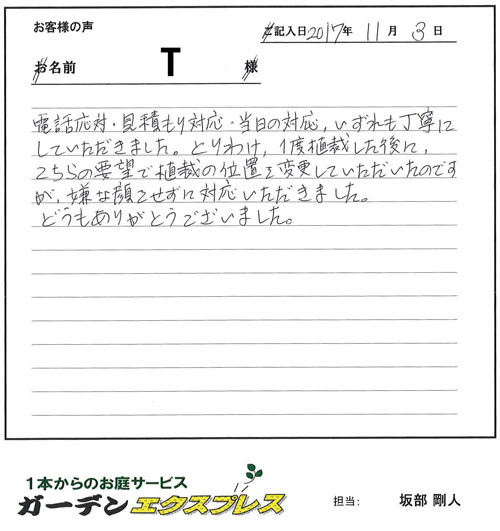 お客様の声
ご記入日2017年 11月 3日
お名前 T 様
電話応対・見積もり対応・当日の対応，いずれも丁寧に
していただきました。とりわけ，1度植栽した後に，
こちらの要望で植栽の位置を変更していただいたのです
が，嫌な顔をせずに対応いただきました。
どうもありがとうございました。
1本からのお庭サービス
ガーデンエクスプレス
担当: 坂部 剛人